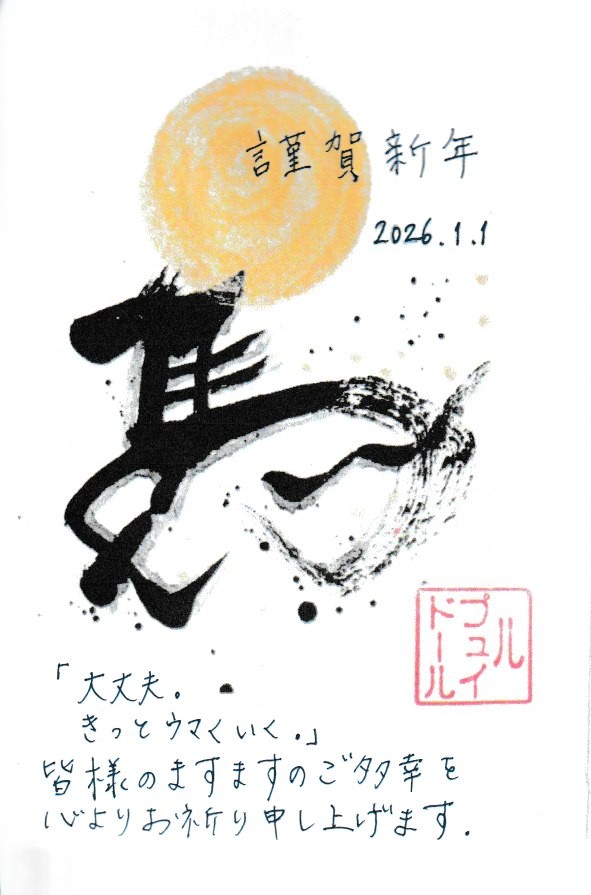 謹賀新年
2026.1.1
馬
ル
プュイ
ドール
「大丈夫。
きっとウマくいく。」
皆様のますますのご多幸を
心よりお祈り申し上げます.